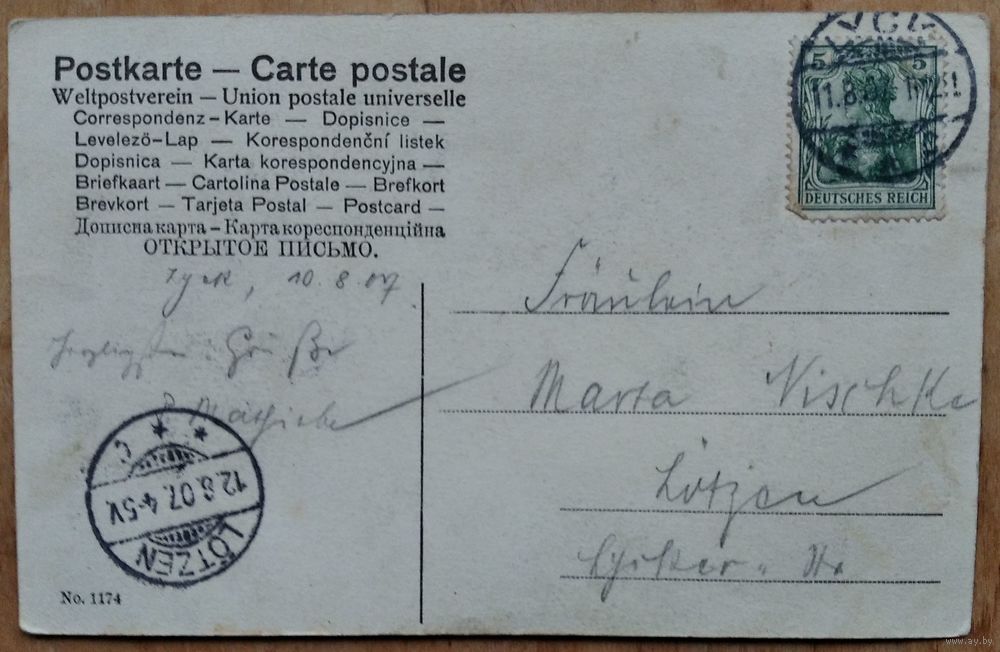 Postkarte — Carte postale
Weltpostverein — Union postale universelle
Correspondenz-Karte — Dopisnice —
Levelező-Lap — Korespondenční listek
Dopisnica — Karta korespondencyjna —
Briefkaart — Cartolina Postale — Brefkort
Brevkort — Tarjeta Postal — Postcard —
Дописна карта — Карта кореспонденційна
ОТКРЫТОЕ ПИСЬМО.
Lyck, 10.8.07
Grüße
5 5
DEUTSCHES REICH
LYCK
11.8.07
Fräulein
Marta Nischke
Lötzen
Lycker Str
12.8.07. 4-5V.
c
LÖTZEN
No. 1174
www.ay.by